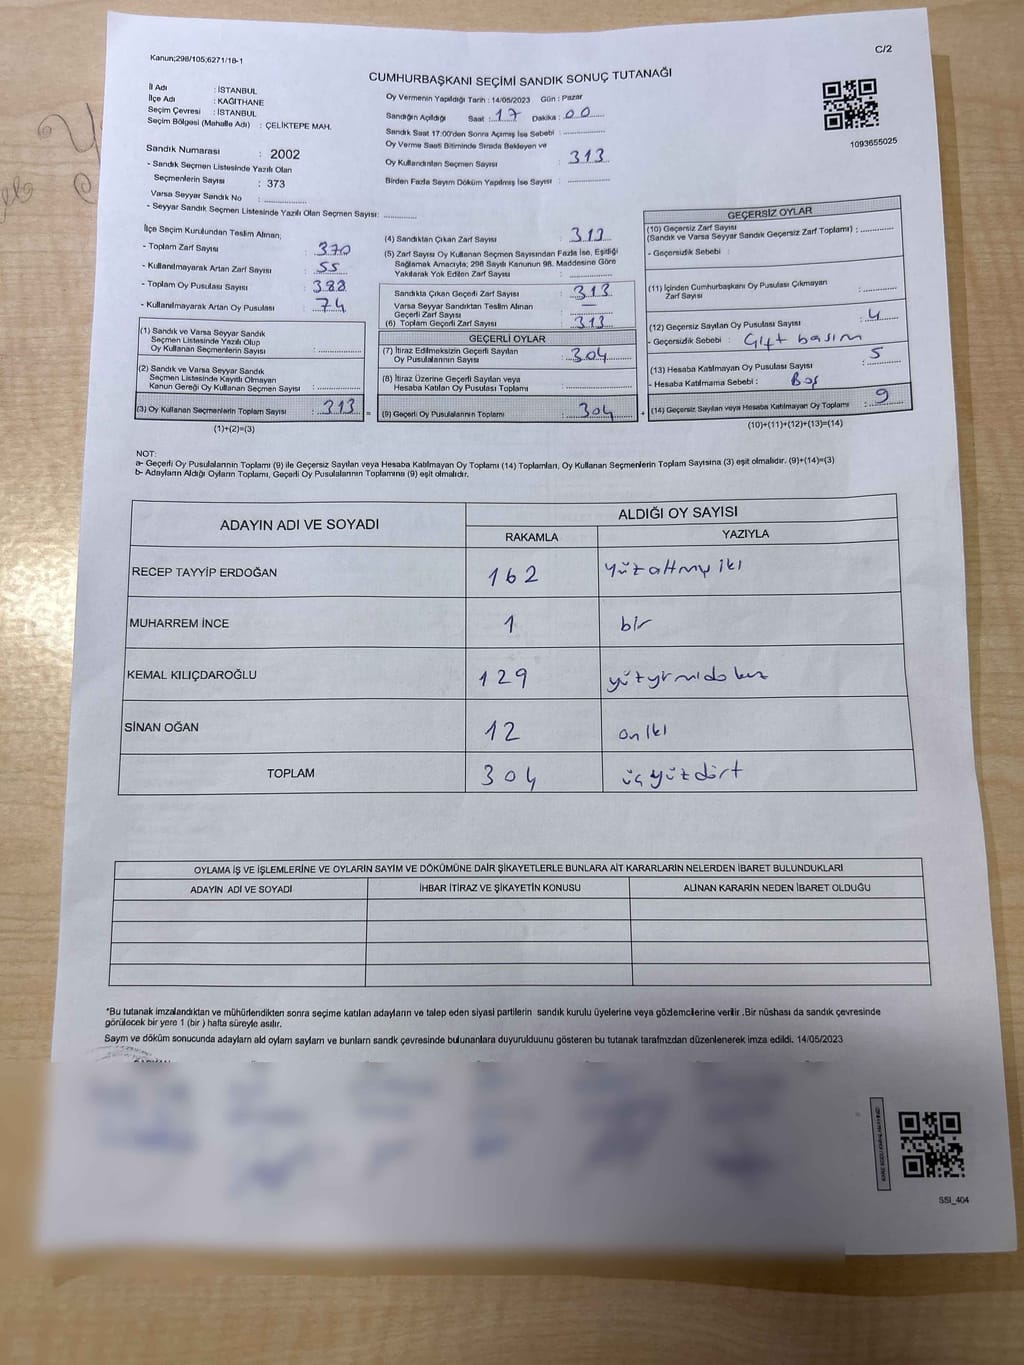 Kanun;298/105;6271/18-1
C/2
CUMHURBAŞKANI SEÇİMİ SANDIK SONUÇ TUTANAĞI
İl Adı : İSTANBUL
İlçe Adı : KAĞITHANE
Seçim Çevresi : İSTANBUL
Seçim Bölgesi (Mahalle Adı) : ÇELİKTEPE MAH.
Sandık Numarası : 2002
- Sandık Seçmen Listesinde Yazılı Olan
Seçmenlerin Sayısı : 373
Varsa Seyyar Sandık No : ..............
- Seyyar Sandık Seçmen Listesinde Yazılı Olan Seçmen Sayısı: ............
Oy Vermenin Yapıldığı Tarih : 14/05/2023 Gün : Pazar
Sandığın Açıldığı Saat : 17 Dakika : 00
Sandık Saat 17:00'den Sonra Açımış İse Sebebi : ..............
Oy Verme Saati Bitiminde Sırada Bekleyen ve
Oy Kullandırılan Seçmen Sayısı : 313
Birden Fazla Sayım Döküm Yapılmış İse Sayısı : ..............
1093655025
İlçe Seçim Kurulundan Teslim Alınan;
- Toplam Zarf Sayısı : 370
- Kullanılmayarak Artan Zarf Sayısı : 55
- Toplam Oy Pusulası Sayısı : 388
- Kullanılmayarak Artan Oy Pusulası : 74
(1) Sandık ve Varsa Seyyar Sandık
Seçmen Listesinde Yazılı Olup
Oy Kullanan Seçmenlerin Sayısı : ..............
(2) Sandık ve Varsa Seyyar Sandık
Seçmen Listesinde Kayıtlı Olmayan
Kanun Gereği Oy Kullanan Seçmen Sayısı : ..............
(3) Oy Kullanan Seçmenlerin Toplam Sayısı : 313 =
(1)+(2)=(3)
(4) Sandıktan Çıkan Zarf Sayısı : 313
(5) Zarf Sayısı Oy Kullanan Seçmen Sayısından Fazla İse, Eşitliği
Sağlamak Amacıyla; 298 Sayılı Kanunun 98. Maddesine Göre
Yakılarak Yok Edilen Zarf Sayısı : ..............
Sandıkta Çıkan Geçerli Zarf Sayısı : 313
Varsa Seyyar Sandıktan Teslim Alınan
Geçerli Zarf Sayısı : —
(6) Toplam Geçerli Zarf Sayısı : 313
GEÇERLİ OYLAR
(7) İtiraz Edilmeksizin Geçerli Sayılan
Oy Pusulalarının Sayısı : 304
(8) İtiraz Üzerine Geçerli Sayılan veya
Hesaba Katılan Oy Pusulası Toplamı : ..............
(9) Geçerli Oy Pusulalarının Toplamı : 304 +
GEÇERSİZ OYLAR
(10) Geçersiz Zarf Sayısı
(Sandık ve Varsa Seyyar Sandık Geçersiz Zarf Toplamı) : ..............
- Geçersizlik Sebebi :
(11) İçinden Cumhurbaşkanı Oy Pusulası Çıkmayan
Zarf Sayısı : ..............
(12) Geçersiz Sayılan Oy Pusulası Sayısı : 4
- Geçersizlik Sebebi : Çift basım
(13) Hesaba Katılmayan Oy Pusulası Sayısı : 5
- Hesaba Katılmama Sebebi : Boş
(14) Geçersiz Sayılan veya Hesaba Katılmayan Oy Toplamı : 9
(10)+(11)+(12)+(13)=(14)
NOT:
a- Geçerli Oy Pusulalarının Toplamı (9) ile Geçersiz Sayılan veya Hesaba Katılmayan Oy Toplamı (14) Toplamları, Oy Kullanan Seçmenlerin Toplam Sayısına (3) eşit olmalıdır. (9)+(14)=(3)
b- Adayların Aldığı Oyların Toplamı, Geçerli Oy Pusulalarının Toplamına (9) eşit olmalıdır.
ADAYIN ADI VE SOYADI
ALDIĞI OY SAYISI
RAKAMLA YAZIYLA
RECEP TAYYİP ERDOĞAN 162 yüzaltmış iki
MUHARREM İNCE 1 bir
KEMAL KILIÇDAROĞLU 129 yüzyirmidokuz
SİNAN OĞAN 12 oniki
TOPLAM 304 üçyüzdört
OYLAMA İŞ VE İŞLEMLERİNE VE OYLARIN SAYIM VE DÖKÜMÜNE DAİR ŞİKAYETLERLE BUNLARA AİT KARARLARIN NELERDEN İBARET BULUNDUKLARI
ADAYIN ADI VE SOYADI İHBAR İTİRAZ VE ŞİKAYETİN KONUSU ALINAN KARARIN NEDEN İBARET OLDUĞU
*Bu tutanak imzalandıktan ve mühürlendikten sonra seçime katılan adayların ve talep eden siyasi partilerin sandık kurulu üyelerine veya gözlemcilerine verilir .Bir nüshası da sandık çevresinde
görülecek bir yere 1 (bir ) hafta süreyle asılır.
Saym ve döküm sonucunda adayların ald oylarn saylarn ve bunlarn sandk çevresinde bulunanlara duyurulduunu gösteren bu tutanak tarafmzdan düzenlenerek imza edildi. 14/05/2023
SSI_404